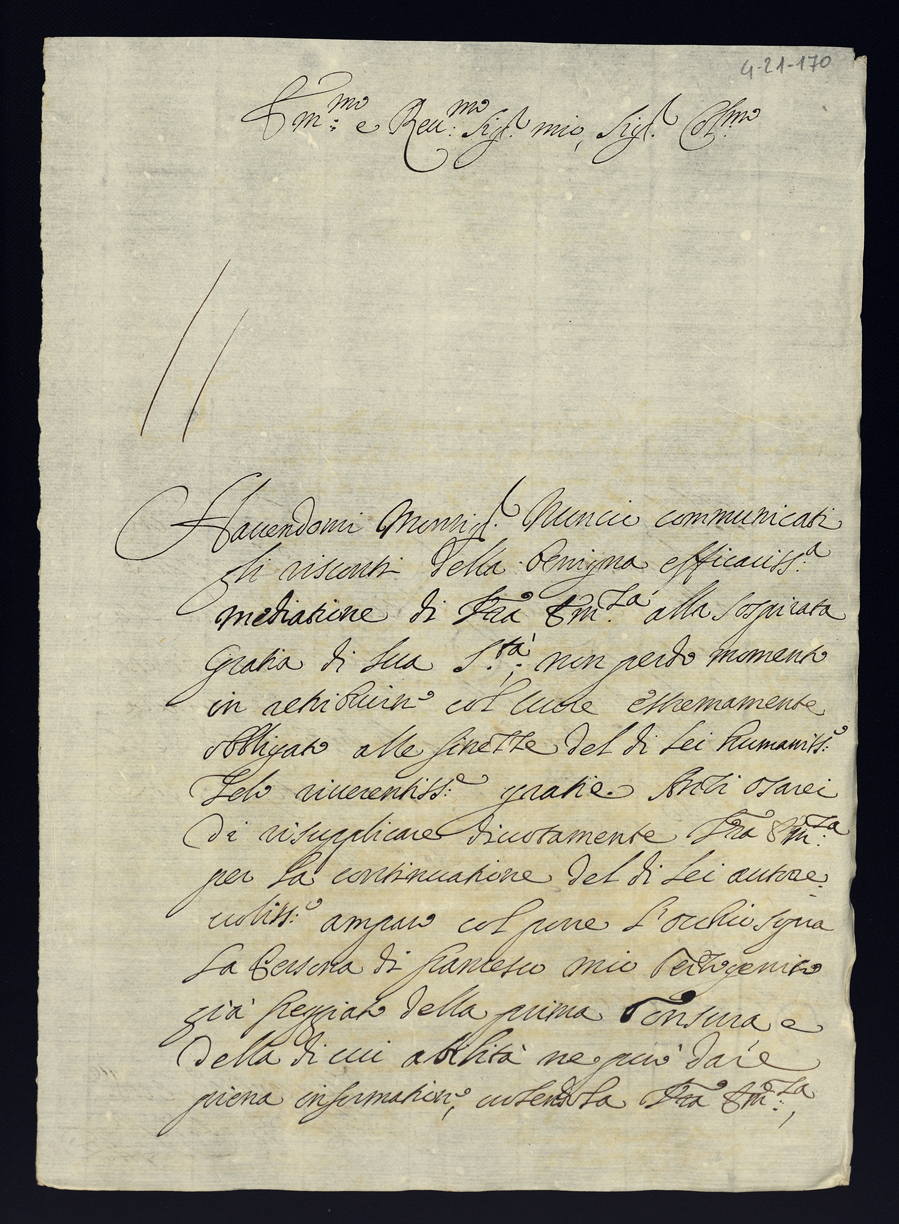 4-21-170
Em:mo e Reu:mo Sig.r mio, Sig.r Col.mo
Hauendomi Monsig.r Nuncio communicati
gli riscontri della benigna efficaciss.a
mediatione di Vra Em.za alla sospirata
Gratia di Sua S.tà, non perdo momento
in retribuirne col cuore estremamente
obbligato alle finezze del di Lei humaniss:o
Zelo riuerentiss:e gratie. Anzi osarei
di risupplicare diuotamente Vra Em.za
per la continuatione del di Lei autore-
uoliss:o amparo col porre l'occhio sopra
la Persona di Francesco mio
già freggiato della prima Tonsura e
della di cui abilità ne può dare
piena information.e, uolendola Vra Em:za,